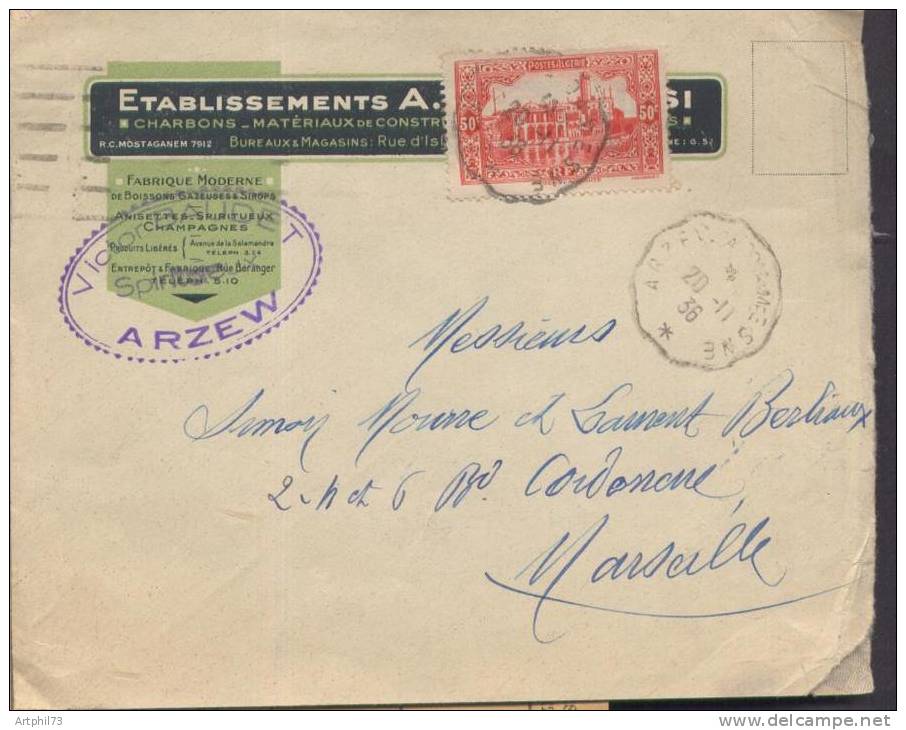 ETABLISSEMENTS A. SI
CHARBONS _ MATÉRIAUX DE CONSTR S
R.C. MOSTAGANEM 7912 BUREAUX & MAGASINS: Rue d'Is
POSTES ALGERIE
50c 50c
FABRIQUE MODERNE
DE BOISSONS GAZEUSES & SIROPS
ANISETTES_SPIRITUEUX
CHAMPAGNES
PRODUITS LIBÉRÉS { Avenue de la Salamandre
TÉLÉPH. 3.24
ENTREPÔT & FABRIQUE: Rue Béranger
TÉLÉPH. 5.10
Victor
Spiritueux
ARZEW
ARZEW A
20 -11
36
Messieurs
Simon Mourre et Laurent Berliaux
2-4 et 6 Bd. Corderie
Marseille
Artphil73
www.delcampe.net